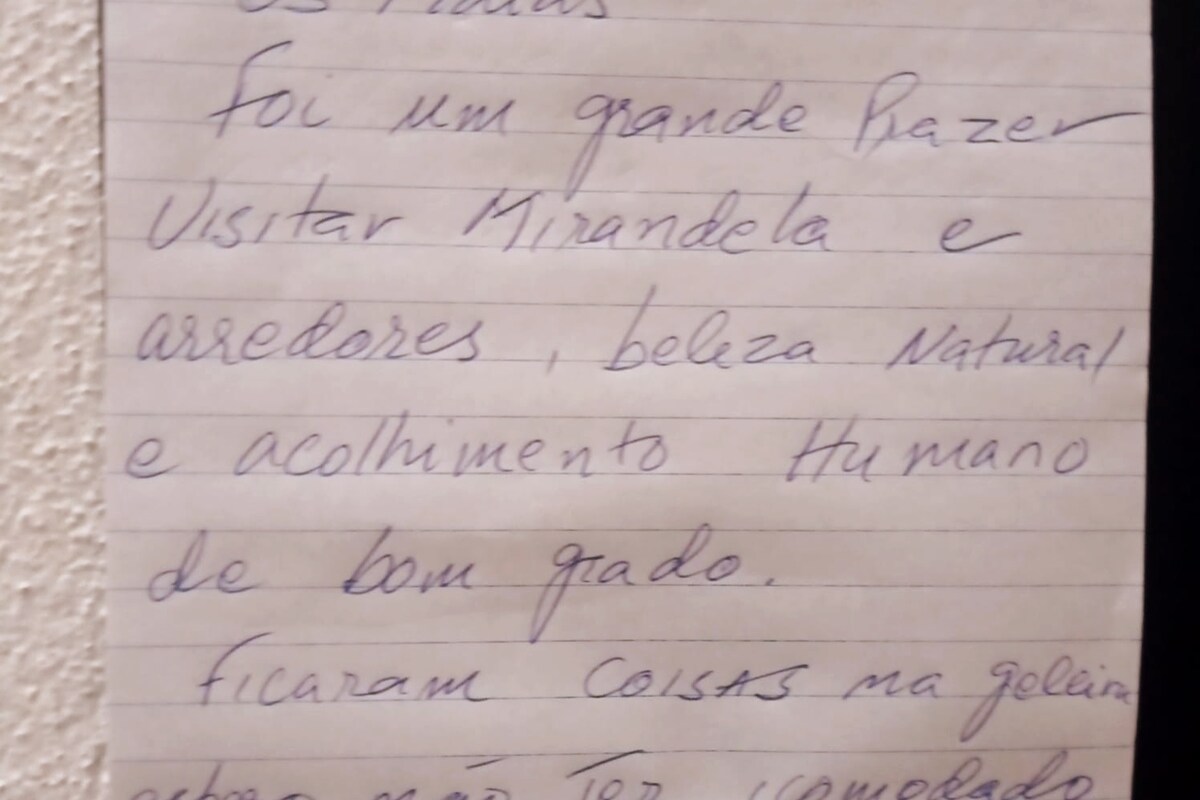 Foi um grande Prazer
Visitar Mirandela e
arredores, beleza Natural
e acolhimento Humano
de bom grado.
ficaram COISAS na geleira
não ter